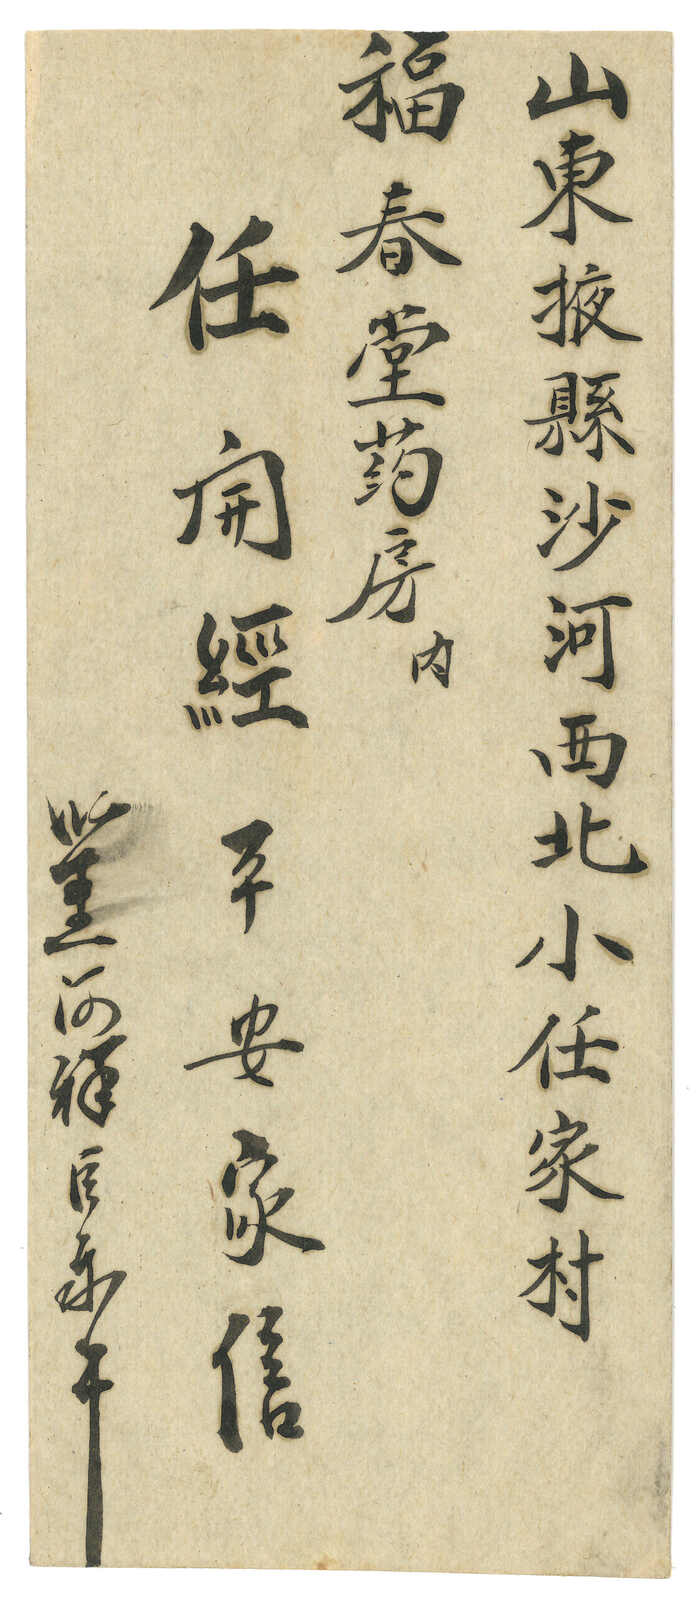 山東掖縣沙河西北小任家村
福春堂药房内
任開經平安家信